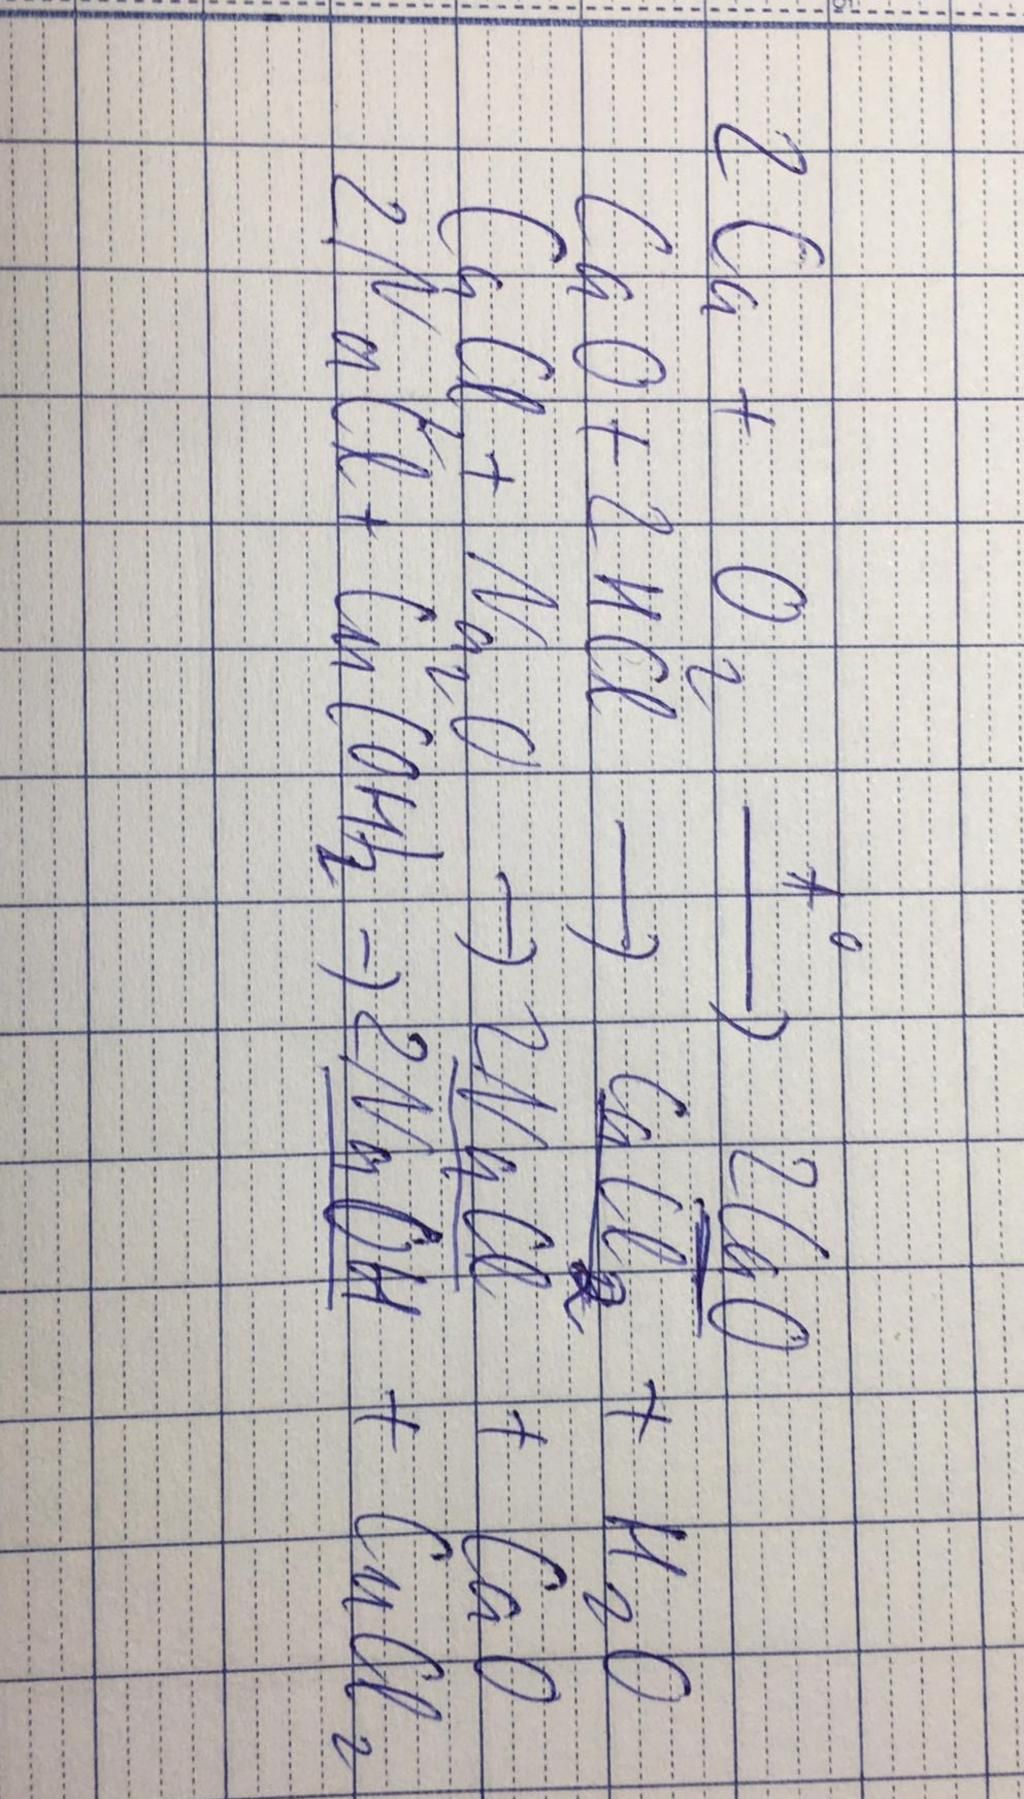 2Ca + O₂ —t°→ 2CaO
CaO + 2HCl → CaCl₂ + H₂O
CaCl₂ + Na₂O → 2NaCl + CaO
2NaCl + Cu(OH)₂ → 2NaOH + CuCl₂